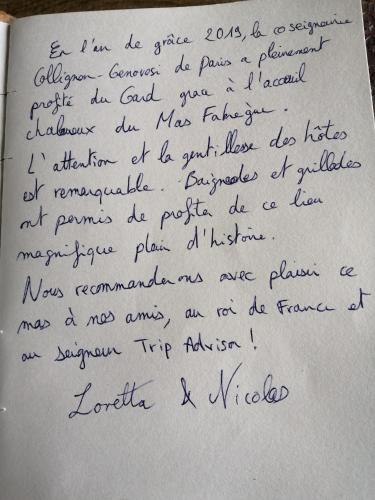 En l'an de grâce 2019, la coseigneurie
Collignon-Genovosi de Paris a pleinement
profité du Gard grâce à l'accueil
chaleureux du Mas Fabrègue.
L'attention et la gentillesse des hôtes
est remarquable. Baignades et grillades
ont permis de profiter de ce lieu
magnifique plein d'histoire.
Nous recommanderons avec plaisir ce
mas à nos amis, au roi de France et
au seigneur Trip Advisor !
Loretta & Nicolas